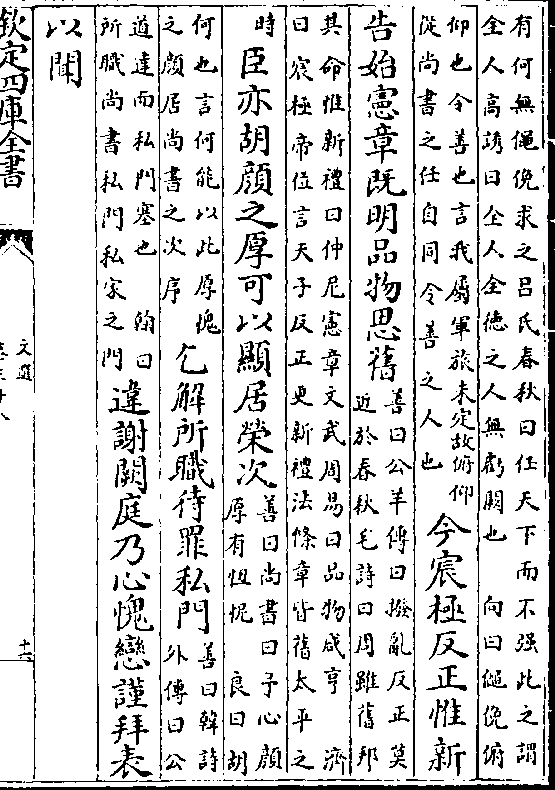 有何無僶俛求之呂氏春秋曰任天下而不强此之謂
全人高誘曰全人全德之人無虧闕也　向曰僶俛俯
仰也令善也言我屬軍旅未定故俯仰
從尚書之任自同令善之人也
今宸極反正惟新
告始憲章既明品物思舊
善曰公羊傳曰撥亂反正莫
近於春秋毛詩曰周雖舊邦
其命惟新禮曰仲尼憲章文武周易曰品物咸亨　濟
曰宸極帝位言天子反正更新禮法條章皆舊太平之
時
臣亦胡顔之厚可以顯居榮次
善曰尚書曰予心顔
厚有忸怩　良曰胡
何也言何能以此厚愧
之顔居尚書之次序
乞解所職待罪私門
善曰韓詩
外傳曰公
道達而私門塞也　翰曰
所職尚書私門私家之門
違謝闕庭乃心愧戀謹拜表
以聞
欽定四庫全書
文選
十六